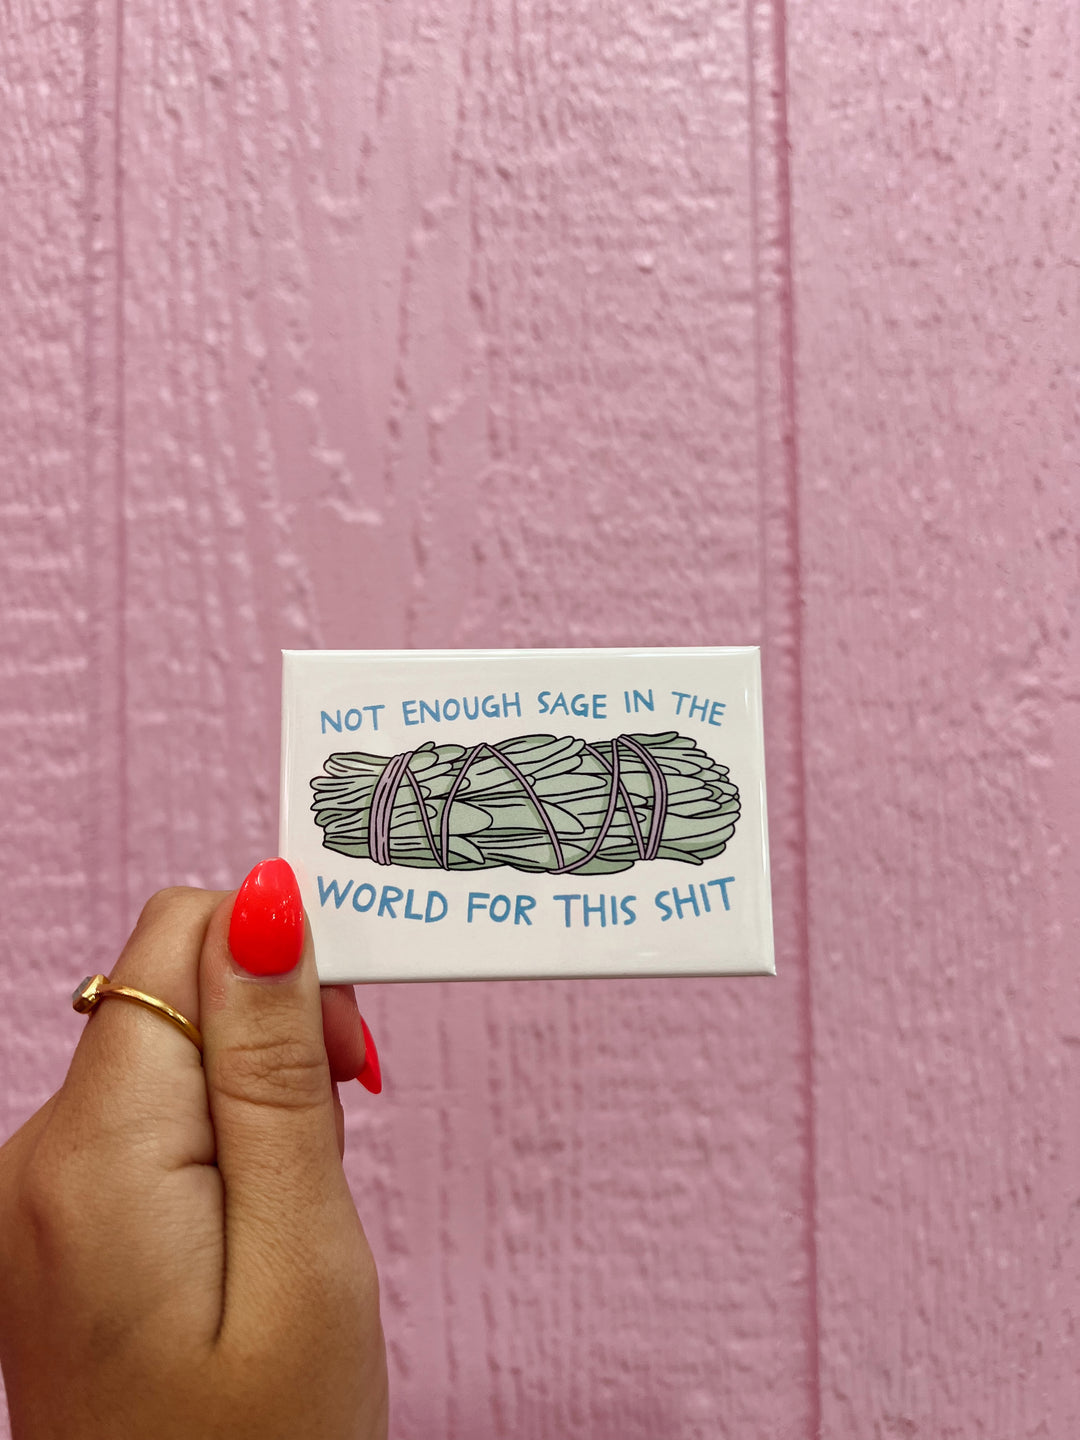 NOT ENOUGH SAGE IN THE
WORLD FOR THIS SHIT